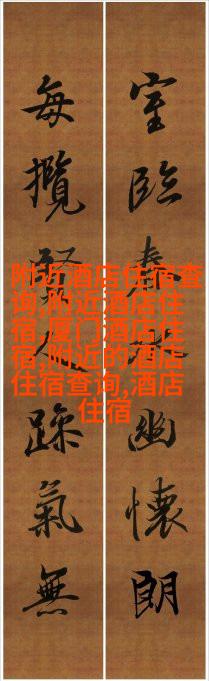 室臨春幽懷朗
每攬賢人躁氣無
附近酒店住宿查
询,附近酒店住
宿,厦门酒店住
宿,附近的酒店
住宿查询,酒店
住宿